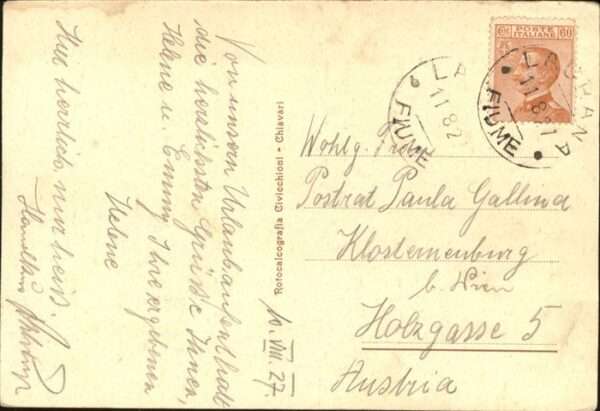 Von unserm Urlaubaufenthalt
die herzlichsten Grüße Ihnen,
Helene u. Emmy Ihre ergebene
Helene
Hier herrlich, nur heiß.
Rotocalcografia Civicchioni - Chiavari
10. VIII. 27.
POSTE ITALIANE
60
LAURANA
11.8.27
FIUME
LA
11.8.2
FIUME
Wohlg. Frau
Postrat Paula Gallina
Klosterneuburg
b. Wien
Holzgasse 5
Austria